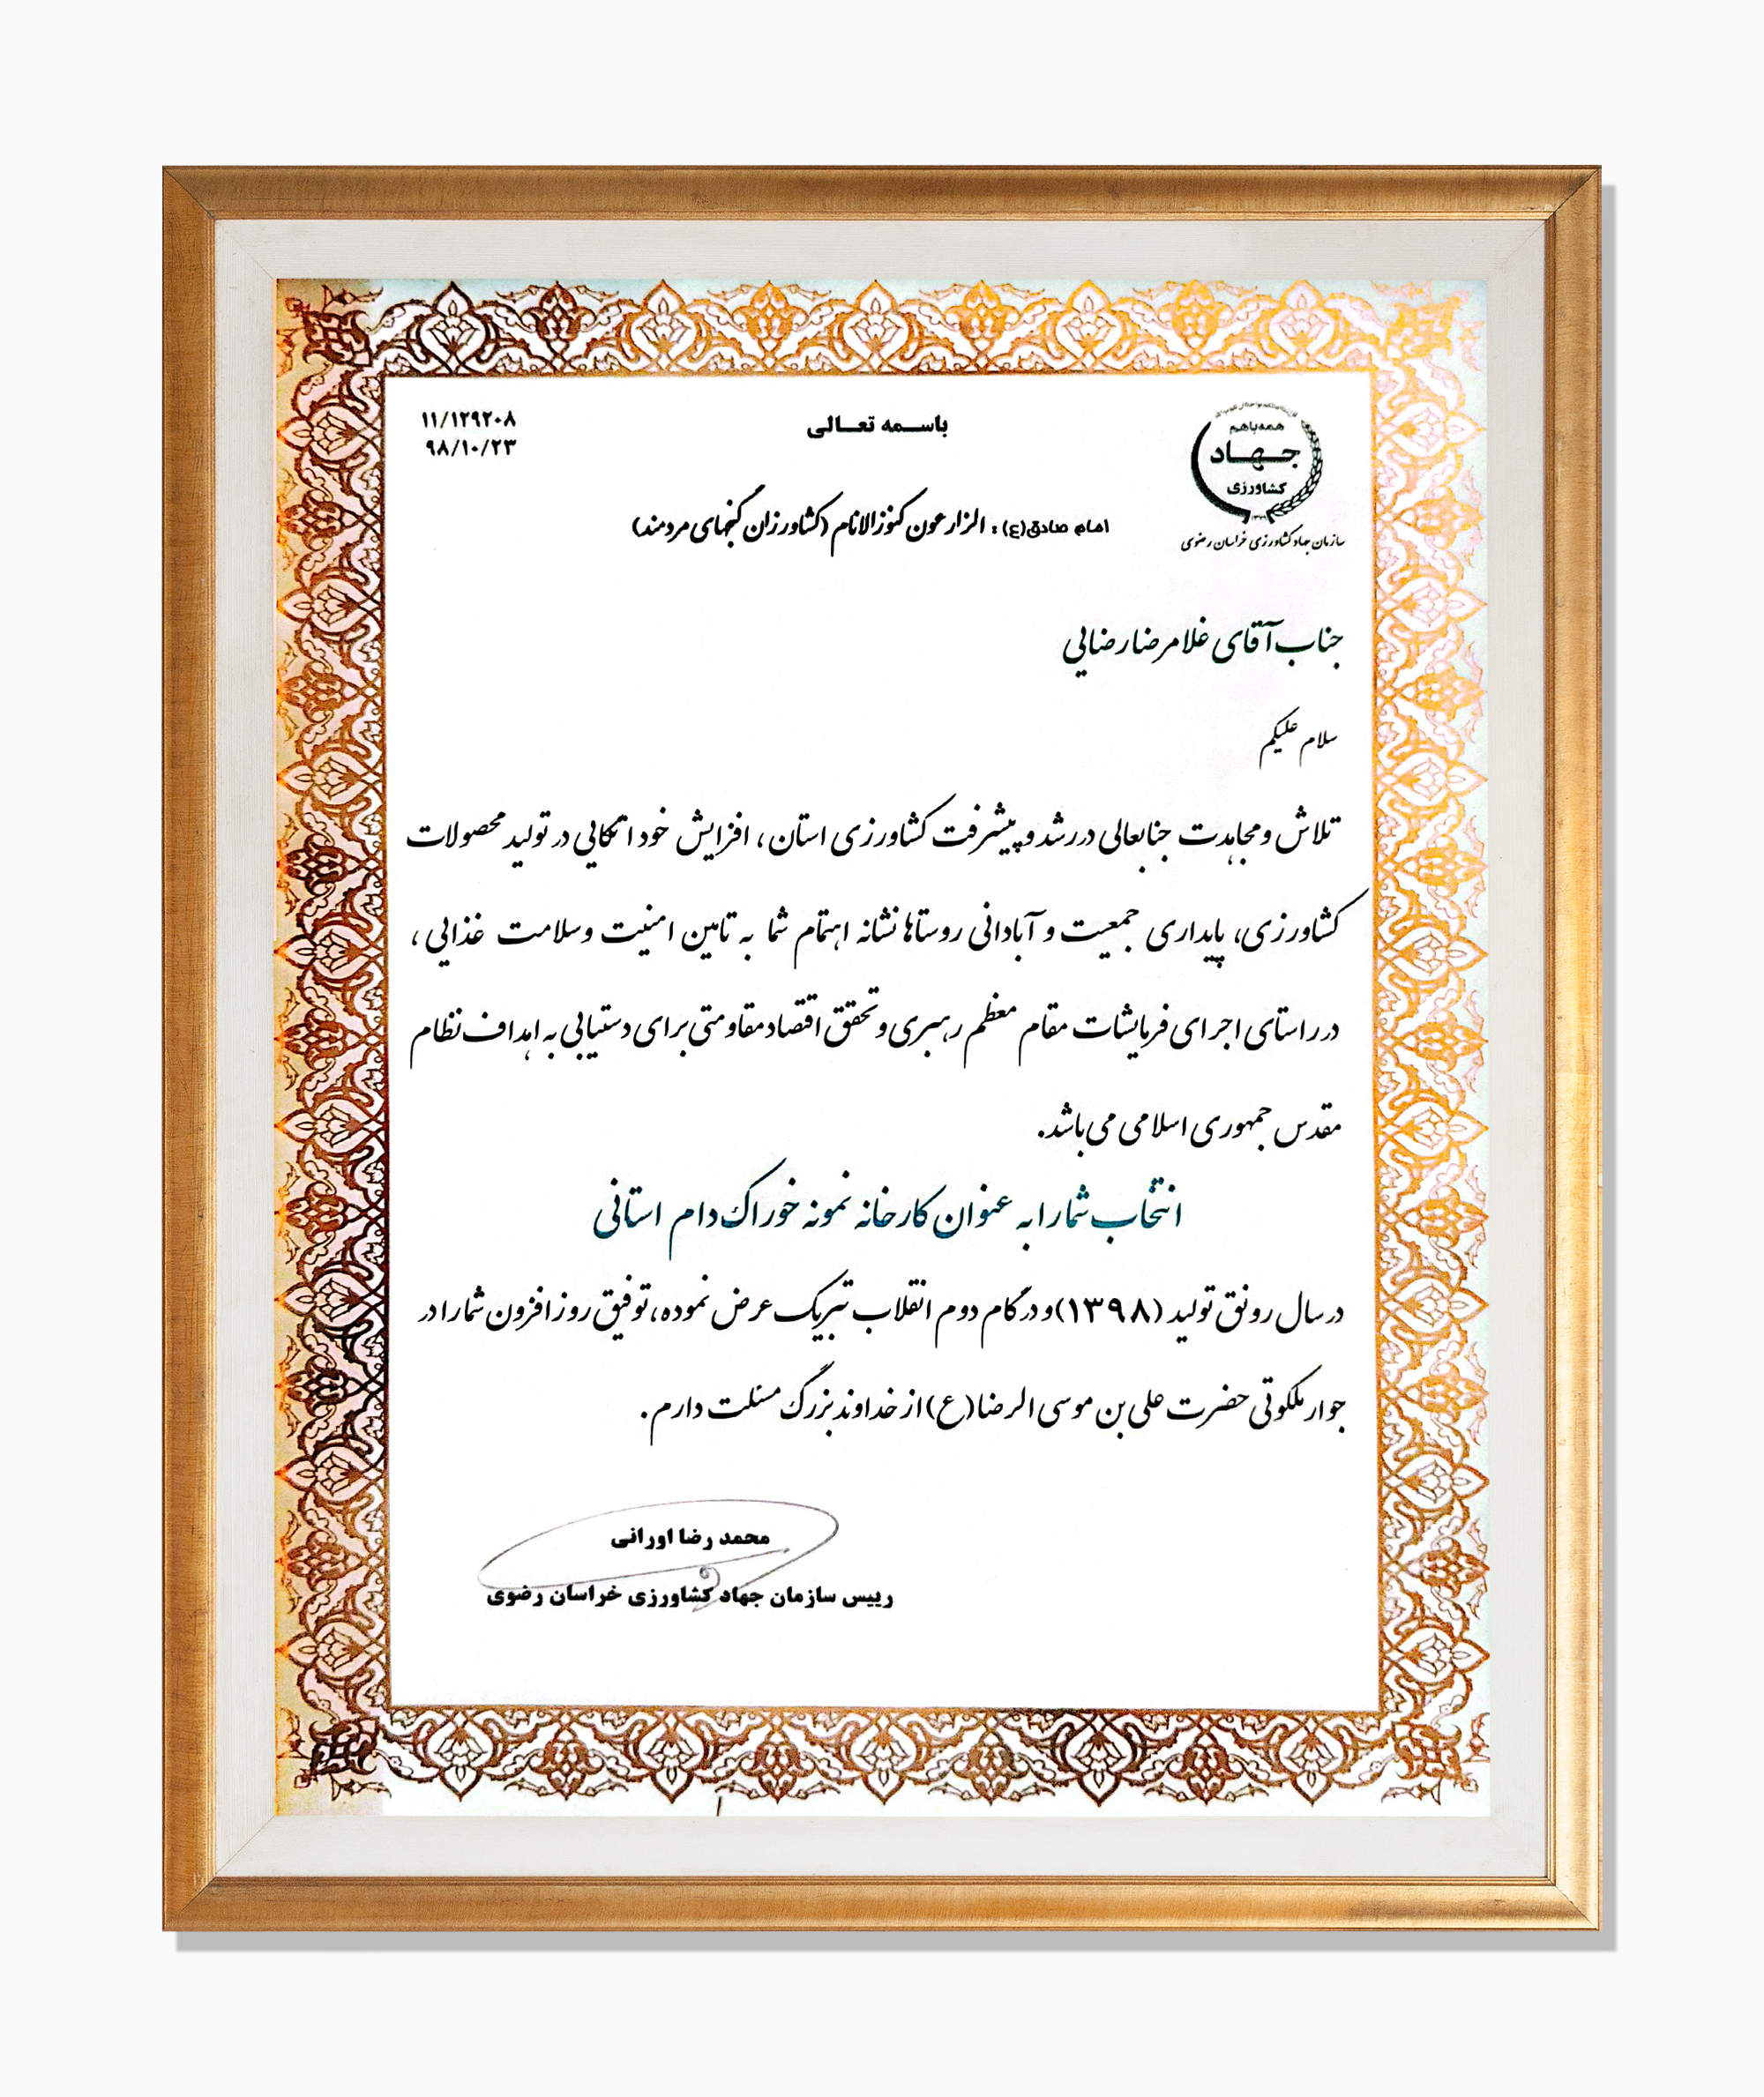 باسمه تعالی
۱۱/۱۲۹۲۰۸
۹۸/۱۰/۲۳
همه با هم
جهاد
کشاورزی
سازمان جهاد کشاورزی خراسان رضوی
امام صادق(ع): الزارعون کنوز الانام (کشاورزان گنجهای مردمند)
جناب آقای غلامرضا رضایی
سلام علیکم
تلاش و مجاهدت جنابعالی در رشد و پیشرفت کشاورزی استان، افزایش خود اتکایی در تولید محصولات
کشاورزی، پایداری جمعیت و آبادانی روستاها نشانه اهتمام شما به تامین امنیت و سلامت غذایی،
در راستای اجرای فرمایشات مقام معظم رهبری و تحقق اقتصاد مقاومتی برای دستیابی به اهداف نظام
مقدس جمهوری اسلامی می باشد.
انتخاب شما را به عنوان کارخانه نمونه خوراک دام استانی
در سال رونق تولید (۱۳۹۸) و در گام دوم انقلاب تبریک عرض نموده، توفیق روز افزون شما را در
جوار ملکوتی حضرت علی بن موسی الرضا(ع) از خداوند بزرگ مسئلت دارم.
محمد رضا اورانی
رییس سازمان جهاد کشاورزی خراسان رضوی